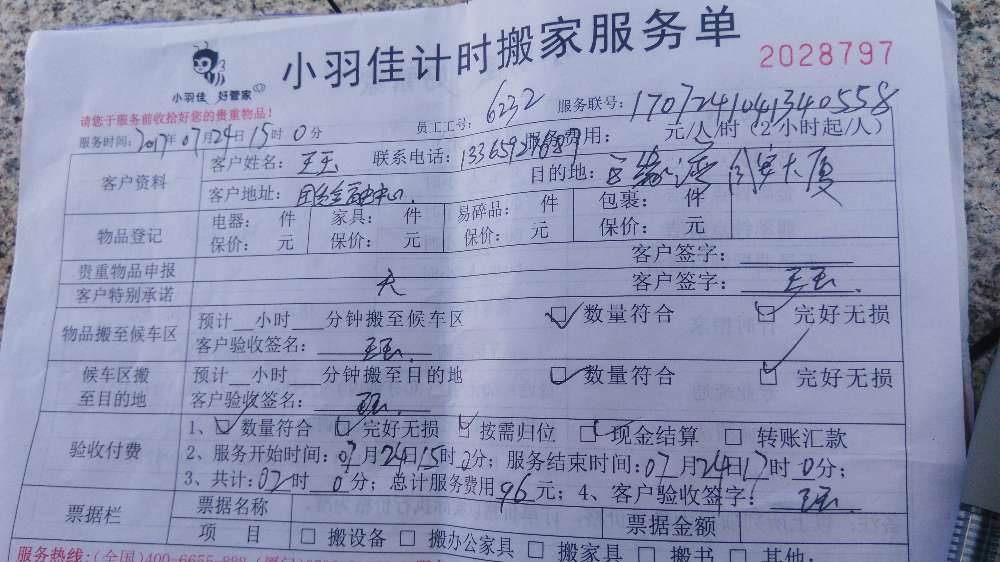 小羽佳计时搬家服务单
2028797
小羽佳 好管家
请您于服务前收拾好您的贵重物品!
员工工号: 6232 服务联号: 170724104134 0558
服务时间: 2017年07月24日15时0分 服务费用: 元/人/时(2小时起/人)
客户资料
客户姓名: 王玉 联系电话:
客户地址: 中心 目的地: 大厦
物品登记
电器: 件 家具: 件 易碎品: 件 包裹: 件
保价: 元 保价: 元 保价: 元 保价: 元
贵重物品申报 客户签字:
客户特别承诺 无 客户签字: 王玉
物品搬至候车区
预计__小时___分钟搬至候车区 数量符合 完好无损
客户验收签名: 王玉
候车区搬至目的地
预计__小时___分钟搬至目的地 数量符合 完好无损
客户验收签名: 王玉
验收付费
1、数量符合 完好无损 按需归位 现金结算 转账汇款
2、服务开始时间:07月24日15时0分; 服务结束时间:07月24日17时0分;
3、共计:02时0分; 总计服务费用96元; 4、客户验收签字: 王玉
票据栏 票据名称 票据金额
项 目 搬设备 搬办公家具 搬家具 搬书 其他:
服务热线:(全国)400-6655-888